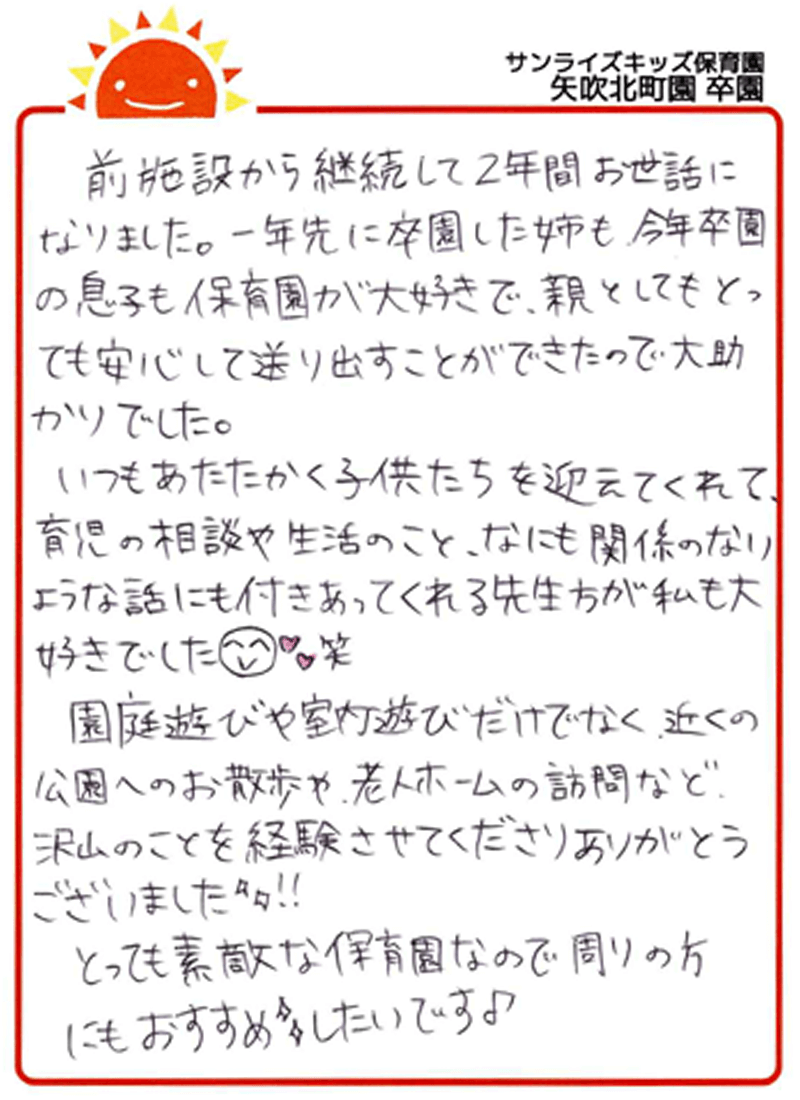 サンライズキッズ保育園
矢吹北町園 卒園
前施設から継続して2年間お世話に
なりました。一年先に卒園した姉も今年卒園
の息子も保育園が大好きで、親としてもとっ
ても安心して送り出すことができたので大助
かりでした。
いつもあたたかく子供たちを迎えてくれて、
育児の相談や生活のこと、なにも関係のない
ような話にも付きあってくれる先生方が私も大
好きでした笑
園庭遊びや室内遊びだけでなく、近くの
公園へのお散歩や、老人ホームの訪問など、
沢山のことを経験させてくださりありがとう
ございました!!
とっても素敵な保育園なので周りの方
にもおすすめしたいです♪